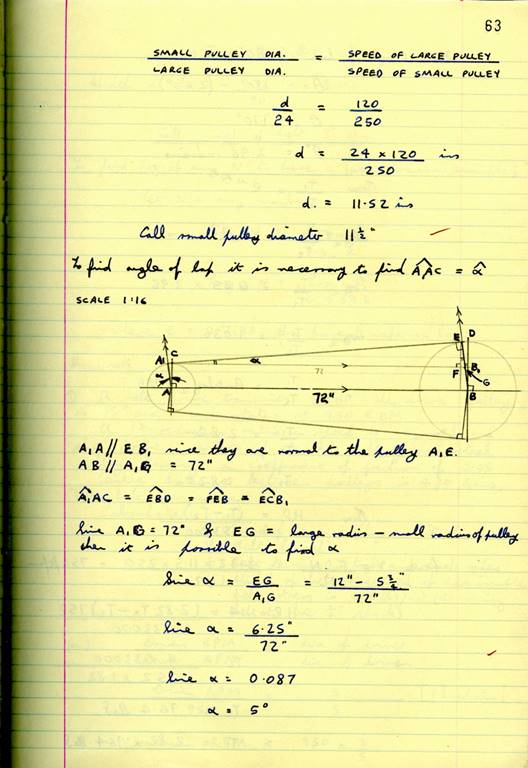 63
SMALL PULLEY DIA. / LARGE PULLEY DIA. = SPEED OF LARGE PULLEY / SPEED OF SMALL PULLEY
d / 24 = 120 / 250
d = 24 x 120 / 250 ins
d. = 11.52 ins
Call small pulley diameter 11 ½"
To find angle of lap it is necessary to find A₁ÂC = α̂
SCALE 1:16
A₁ C α E D
72 F B₁ G
α A 72" B
A₁A // EB, since they are normal to the pulley A₁E.
AB // A₁G = 72"
A₁ÂC = EB̂D = FÊB = EĈB₁
Line A₁G = 72" & EG = large radius – small radius of pulley
then it is possible to find α
Sine α = EG / A₁G = 12" - 5 ¾" / 72"
Sine α = 6.25" / 72"
Sine α = 0.087
α = 5°